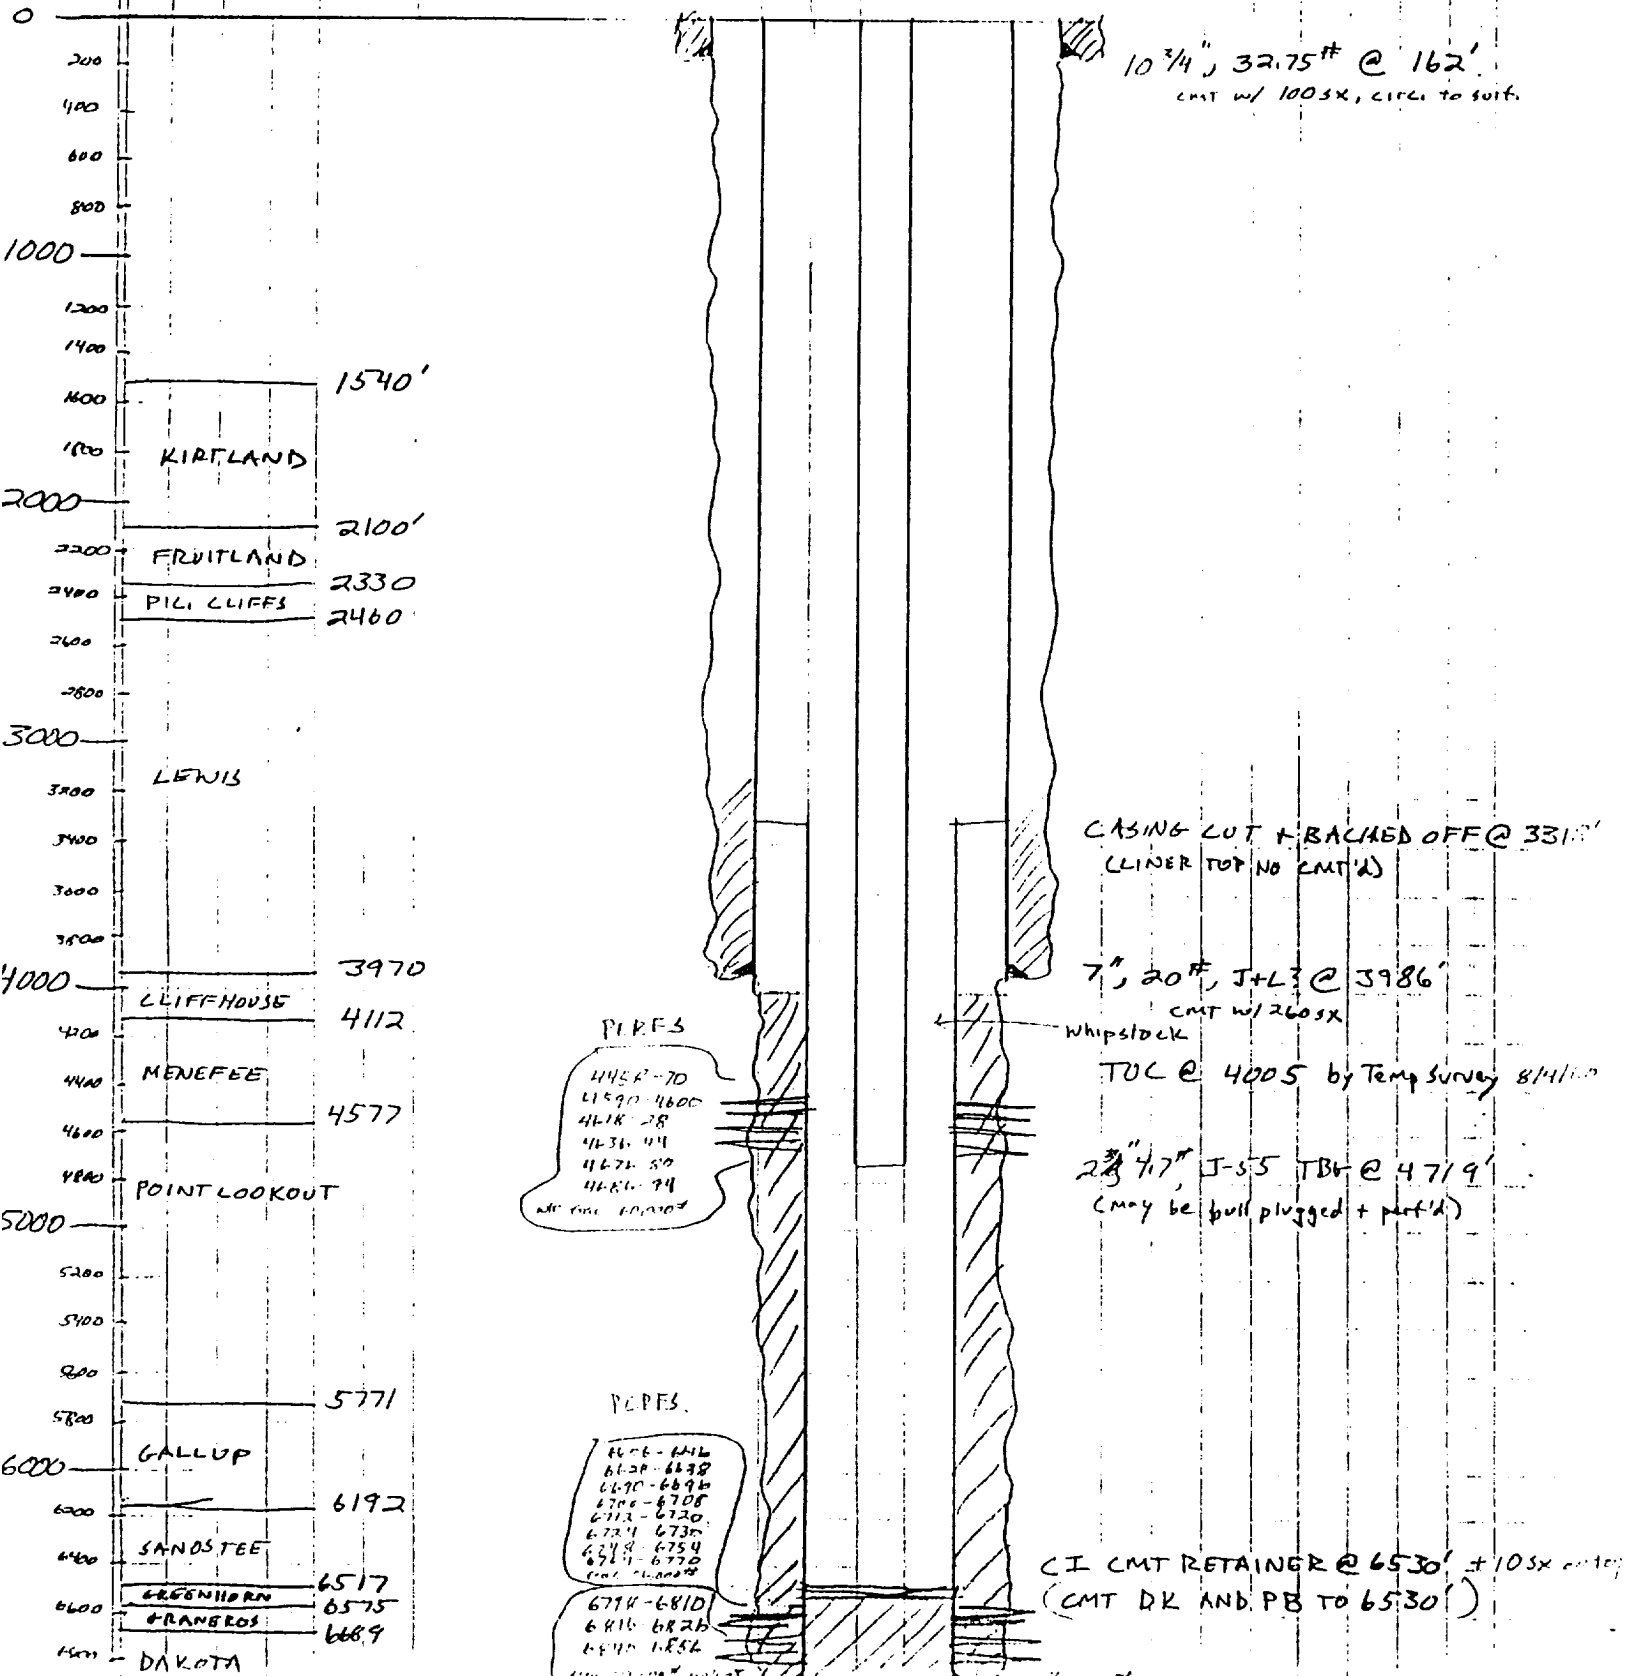 0
200
400
600
800
1000
1200
1400
1600
1800
2000
2200
2400
2600
2800
3000
3200
3400
3600
3800
4000
4200
4400
4600
4800
5000
5200
5400
5600
5800
6000
6200
6400
6600
6800
1540'
KIRTLAND
2100'
FRUITLAND
2330
PIC. CLIFFS
2460
LEWIS
3970
CLIFFHOUSE
4112
MENEFEE
4577
POINT LOOKOUT
5771
GALLUP
6192
SANOSTEE
6517
GREENHORN
6575
GRANEROS
6689
DAKOTA
PERFS
4590-4600
4618-28
4636-44
4686-94
PERFS.
6628-6638
6690-6696
6712-6720
6724 6730
6748-6754
6764-6770
6798-6810
6816 6826
10 3/4", 32.75# @ 162'
cmt w/ 100 sx, circ. to surf.
CASING CUT + BACKED OFF @
(LINER TOP NO CMT'd)
7", 20#, J+L? @ 3986'
CMT w/ 260 sx
Whipstock
TOC @ 4005 by Temp Survey
4.7# J-55 TBG @ 4719'
(may be bull plugged + perf'd)
CI CMT RETAINER @ 6530' + 10 sx
(CMT DK AND PB TO 6530')